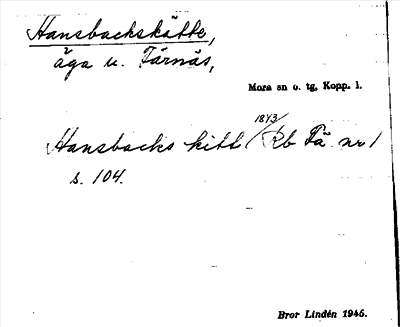 Hansbackskätte,
äga u. Färnäs,
Mora sn o. tg, Kopp. l.
Hansbacks kitt 1843/ Rb Fä nr 1
s. 104.
Bror Lindén 1946.